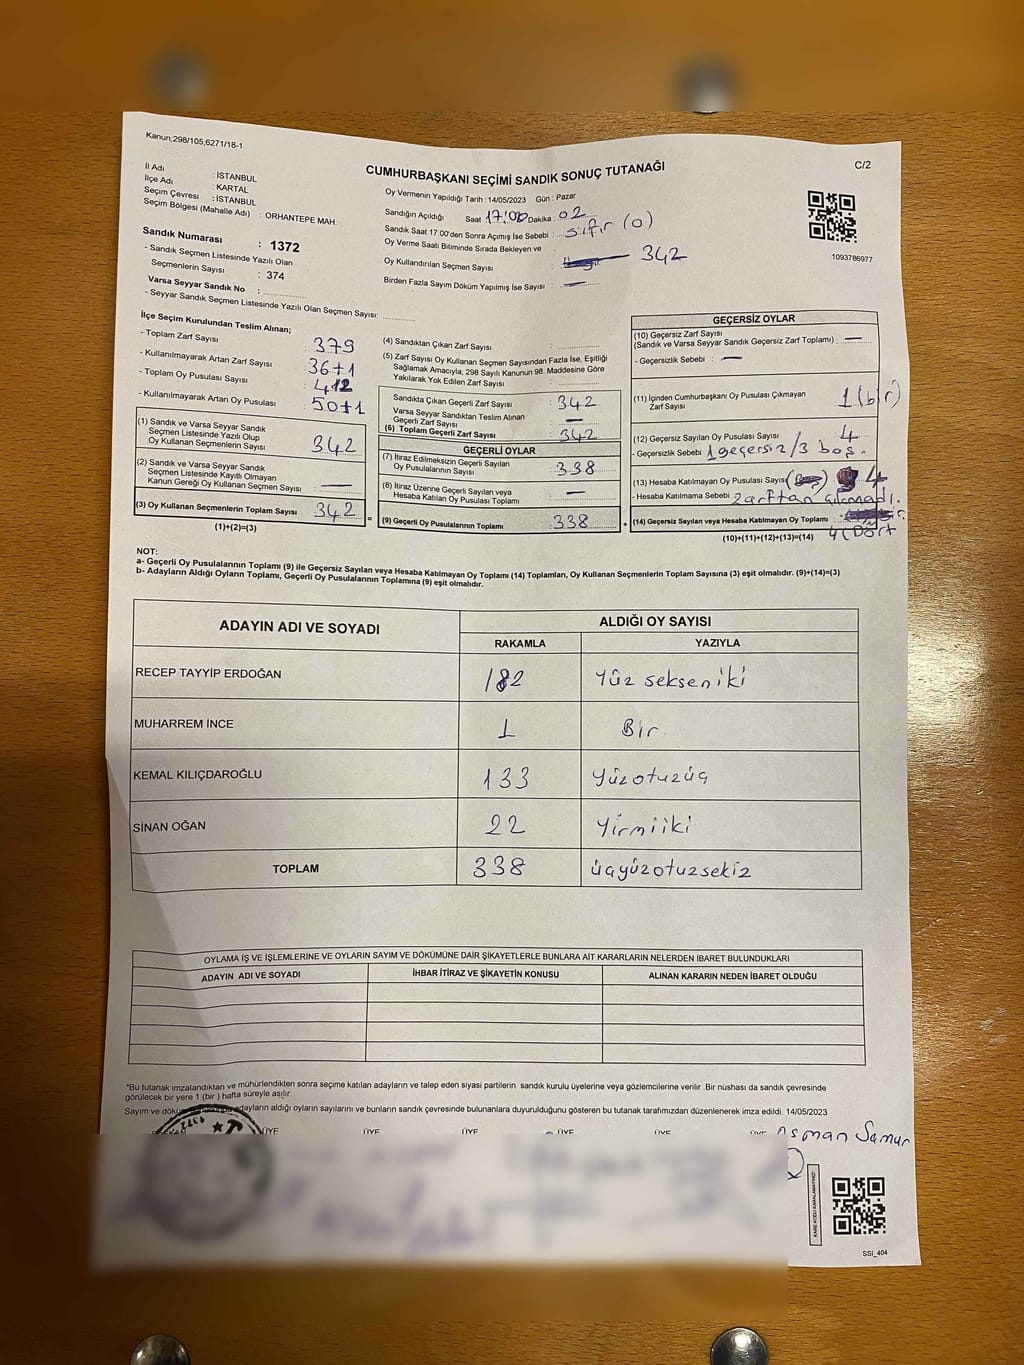 Kanun;298/105,6271/18-1
C/2
CUMHURBAŞKANI SEÇİMİ SANDIK SONUÇ TUTANAĞI
İl Adı : İSTANBUL
İlçe Adı : KARTAL
Seçim Çevresi : İSTANBUL
Seçim Bölgesi (Mahalle Adı) : ORHANTEPE MAH.
Sandık Numarası : 1372
- Sandık Seçmen Listesinde Yazılı Olan
Seçmenlerin Sayısı : 374
Varsa Seyyar Sandık No :
- Seyyar Sandık Seçmen Listesinde Yazılı Olan Seçmen Sayısı:
Oy Vermenin Yapıldığı Tarih : 14/05/2023 Gün : Pazar
Sandığın Açıldığı Saat 17:00 Dakika : 02
Sandık Saat 17:00'den Sonra Açımış İse Sebebi :
Oy Verme Saati Bitiminde Sırada Bekleyen ve sıfır (0)
Oy Kullandırılan Seçmen Sayısı 342
Birden Fazla Sayım Döküm Yapılmış İse Sayısı : —
1093786977
İlçe Seçim Kurulundan Teslim Alınan;
- Toplam Zarf Sayısı : 379
- Kullanılmayarak Artan Zarf Sayısı : 36+1
- Toplam Oy Pusulası Sayısı : 412
- Kullanılmayarak Artan Oy Pusulası : 50+1
(1) Sandık ve Varsa Seyyar Sandık
Seçmen Listesinde Yazılı Olup
Oy Kullanan Seçmenlerin Sayısı : 342
(2) Sandık ve Varsa Seyyar Sandık
Seçmen Listesinde Kayıtlı Olmayan
Kanun Gereği Oy Kullanan Seçmen Sayısı : —
(3) Oy Kullanan Seçmenlerin Toplam Sayısı : 342
(1)+(2)=(3)
(4) Sandıktan Çıkan Zarf Sayısı :
(5) Zarf Sayısı Oy Kullanan Seçmen Sayısından Fazla İse, Eşitliği
Sağlamak Amacıyla; 298 Sayılı Kanunun 98. Maddesine Göre
Yakılarak Yok Edilen Zarf Sayısı :
Sandıkta Çıkan Geçerli Zarf Sayısı : 342
Varsa Seyyar Sandıktan Teslim Alınan
Geçerli Zarf Sayısı : —
(6) Toplam Geçerli Zarf Sayısı : 342
GEÇERLİ OYLAR
(7) İtiraz Edilmeksizin Geçerli Sayılan
Oy Pusulalarının Sayısı : 338
(8) İtiraz Üzerine Geçerli Sayılan veya
Hesaba Katılan Oy Pusulası Toplamı : —
= (9) Geçerli Oy Pusulalarının Toplamı : 338 +
GEÇERSİZ OYLAR
(10) Geçersiz Zarf Sayısı
(Sandık ve Varsa Seyyar Sandık Geçersiz Zarf Toplamı) : —
- Geçersizlik Sebebi : —
(11) İçinden Cumhurbaşkanı Oy Pusulası Çıkmayan
Zarf Sayısı 1 (bir)
(12) Geçersiz Sayılan Oy Pusulası Sayısı : 4
- Geçersizlik Sebebi : 1 geçersiz / 3 boş.
(13) Hesaba Katılmayan Oy Pusulası Sayısı 4
- Hesaba Katılmama Sebebi : zarftan çıkmadı.
(14) Geçersiz Sayılan veya Hesaba Katılmayan Oy Toplamı :
4 (Dört
(10)+(11)+(12)+(13)=(14)
NOT:
a- Geçerli Oy Pusulalarının Toplamı (9) ile Geçersiz Sayılan veya Hesaba Katılmayan Oy Toplamı (14) Toplamları, Oy Kullanan Seçmenlerin Toplam Sayısına (3) eşit olmalıdır. (9)+(14)=(3)
b- Adayların Aldığı Oyların Toplamı, Geçerli Oy Pusulalarının Toplamına (9) eşit olmalıdır.
ADAYIN ADI VE SOYADI ALDIĞI OY SAYISI
RAKAMLA YAZIYLA
RECEP TAYYİP ERDOĞAN 182 Yüz sekseniki
MUHARREM İNCE 1 Bir
KEMAL KILIÇDAROĞLU 133 Yüzotuzüç
SİNAN OĞAN 22 Yirmiiki
TOPLAM 338 üçyüzotuzsekiz
OYLAMA İŞ VE İŞLEMLERİNE VE OYLARIN SAYIM VE DÖKÜMÜNE DAİR ŞİKAYETLERLE BUNLARA AİT KARARLARIN NELERDEN İBARET BULUNDUKLARI
ADAYIN ADI VE SOYADI İHBAR İTİRAZ VE ŞİKAYETİN KONUSU ALINAN KARARIN NEDEN İBARET OLDUĞU
*Bu tutanak imzalandıktan ve mühürlendikten sonra seçime katılan adayların ve talep eden siyasi partilerin sandık kurulu üyelerine veya gözlemcilerine verilir .Bir nüshası da sandık çevresinde
görülecek bir yere 1 (bir ) hafta süreyle asılır.
Sayım ve döküm adayların aldığı oyların sayılarını ve bunların sandık çevresinde bulunanlara duyurulduğunu gösteren bu tutanak tarafımızdan düzenlenerek imza edildi. 14/05/2023
ÜYE ÜYE ÜYE ÜYE ÜYE ÜYE Osman Samur
1372
KARE KODU KARALAMAYINIZ!
SSI_404